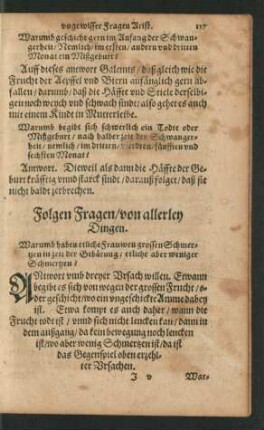 vngewisser Fragen Arist. 127
Warumb geschicht gern im Anfang der Schwan-
gerheit/ Nemlich/ im ersten/ andern vnd dritten
Monat ein Mißgeburt/
Auff dieses antwort Galenus/ daß gleich wie die
Frucht der Aepffel vnd Birrn anfänglich gern ab-
fallen/ darumb/ daß die Häffte vnd Stiele derselbi-
gen noch weych vnd schwach sindt/ also gehet es auch
mit einem Kindt in Mutterleibe.
Warumb begibt sich schwerlich ein Todte oder
Mißgeburt/ nach halber zeit der Schwanger-
heit/ nemlich/ im dritten/ vierdten/ fünfften vnd
sechsten Monat/
Antwort. Dieweil als dann die Häffte der Ge-
burt kräfftig vnnd starck sindt/ darauß folget/ daß sie
nicht baldt zerbrechen.
Folgen Fragen/ von allerley
Dingen.
Warumb haben etliche Frauwen grossen Schmer-
tzen in zeit der Gebärung/ etliche aber weniger
Schmertzen/
ANtwort vmb dreyer Vrsach willen. Etwann
begibt es sich von wegen der grossen Frucht/ o-
der geschicht/ wo ein vngeschickte Amme dabey
ist. Etwa kompt es auch daher/ wann die
Frucht todt ist/ vnnd sich nicht lencken kan/ dann in
dem außgang/ da kein bewegung noch lencken
ist/ wo aber wenig Schmertzen ist/ da ist
das Gegenspiel oben erzehl-
ter Vrsachen.
J v War-